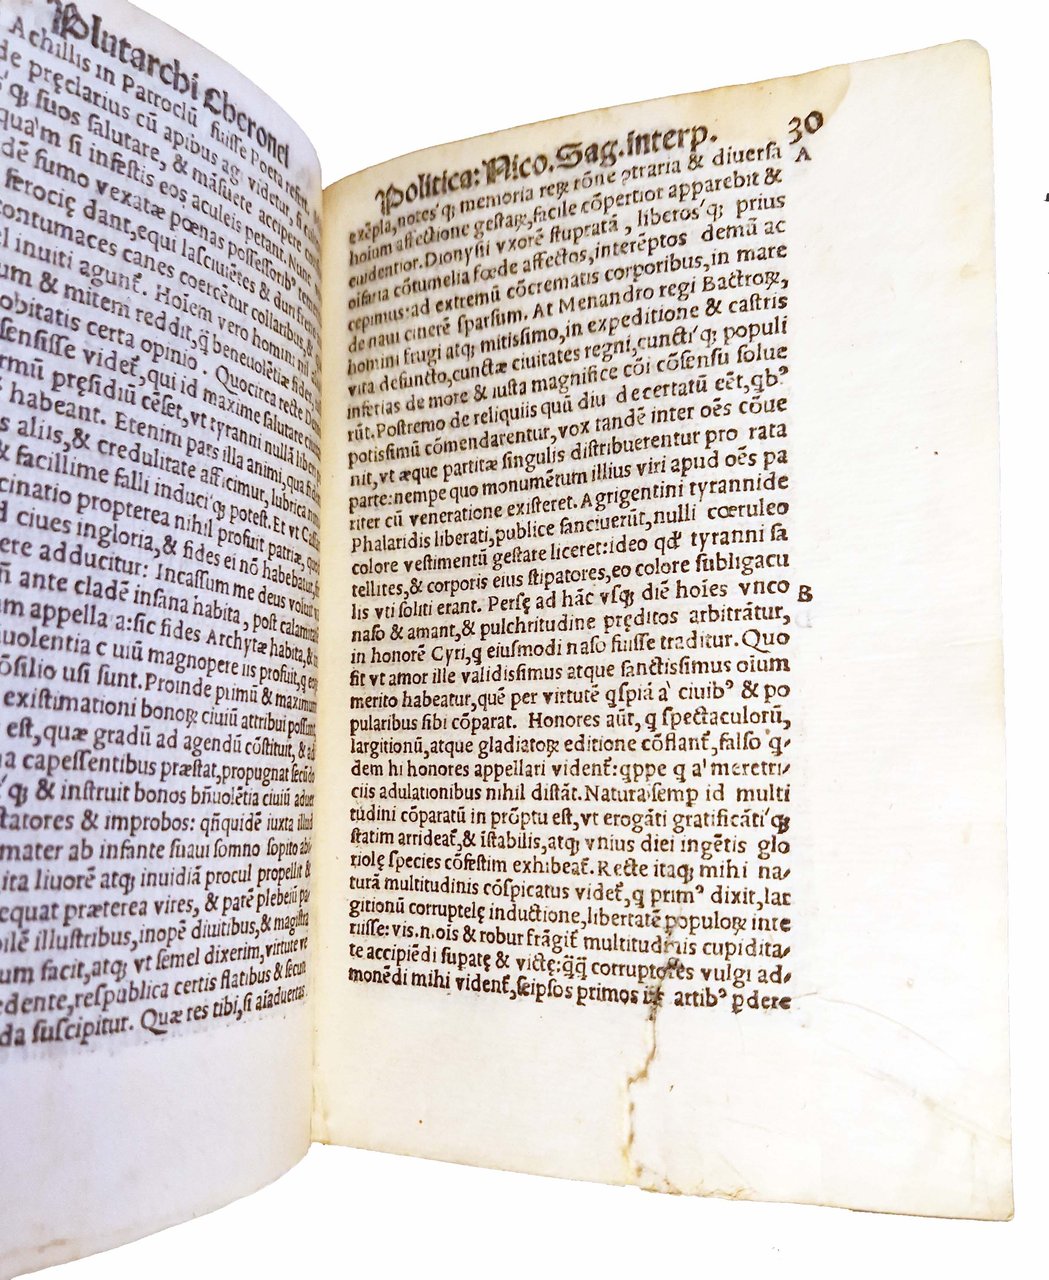 Plutarchi Cheronei
Achillis in Patroclū fuisse Poeta refert
de pręclarius cū apibus agi videtur, si
qꝫ suos salutare, & māsuete accipere
quàm si infestis eos aculeis petant. Nunc
dē fumo vexatæ pœnas possessoribꝰ
ferocię dant, equi lasciuiētes & duri
contumaces canes coercētur collaribus, &
inuiti agunt᷑. Hoīem vero homini nil
um & mitem reddit, q̄ beneuolētiæ fides,
obitatis certa opinio. Quocirca recte
sensisse videt᷑, qui id maxime salutare
rmū pręsidiū cēset, vt tyranni nullā
habeant. Etenim pars illa animi, qua
s aliis, & credulitate afficimur, lubrica
& facillime falli induci qꝫ potest. Et vt
cinatio propterea nihil profuit patriæ,
ciues ingloria, & fides ei nō habebatur,
ere adducitur: Incassum me deus voluit
ante cladē insana habita, post
m appella a: sic fides Archytæ habita, &
uolentia c uiū magnopere iis profuit, q
ōsilio usi sunt. Proinde primū & maximum
existimationi bonoꝝ ciuiū attribui
est, quæ gradū ad agendū cōstituit, & ad
a capessentibus præstat, propugnat secūdo
qꝫ & instruit bonos bn̄uolētia ciuiū
tatores & improbos: qn̄quidē iuxta illud
mater ab infante suaui somno sopito
ita liuorē atqꝫ inuidiā procul propellit &
equat præterea vires, & patē plebeiū
ilē illustribus, inopē diuitibus, & magistra
um facit, atqꝫ vt semel dixerim, virtute
edente, respublica certis flatibus &
da suscipitur. Quæ res tibi, si
Politica: Nico. Sag. interp. 30
exēpla, notes qꝫ memoria reꝝ rōne ꝯtraria & diuersa A
hoium affectione gestaꝝ, facile cōpertior apparebit &
euidentior. Dionysii vxorē stupratā, liberos qꝫ prius
oifaria cōtumelia fœde affectos, interēptos demū ac
cepimus: ad extremū cōcrematis corporibus, in mare
de naui cinerē sparsum. At Menandro regi Bactroꝝ,
homini frugi atqꝫ mitissimo, in expeditione & castris
vita defuncto, cunctæ ciuitates regni, cuncti qꝫ populi
inferias de more & iusta magnifice cōi cōsensu solue
rūt. Postremo de reliquiis quū diu decertatū eēt, qbꝰ
potissimū cōmendarentur, vox tandē inter oēs cōue
nit, vt æque partitæ singulis distribuerentur pro rata
parte: nempe quo monumētum illius viri apud oēs pa
riter cū veneratione existeret. Agrigentini tyrannide
Phalaridis liberati, publice sanciuerūt, nulli cœruleo
colore vestimentū gestare liceret: ideo qđ tyranni sa
tellites, & corporis eius stipatores, eo colore subligacu
lis vti soliti erant. Persę ad hāc vsqꝫ diē hoīes vnco B
naso & amant, & pulchritudine pręditos arbitrātur,
in honorē Cyri, q eiusmodi naso fuisse traditur. Quo
fit vt amor ille validissimus atque sanctissimus oium
merito habeatur, quē per virtutē qspiā a ciuibꝰ & po
pularibus sibi cōparat. Honores aūt, q spectaculorū,
largitionū, atque gladiatoꝝ editione cōflant᷑, falso q-
dem hi honores appellari vident᷑: qppe q a meretri-
ciis adulationibus nihil distāt. Natura semp id multi
tudini cōparatū in prōptu est, vt erogāti gratificāti qꝫ
statim arrideat᷑, & īstabilis, atqꝫ vnius diei ingētis glo
riolę species cōfestim exhibeat᷑. Recte itaqꝫ mihi na-
turā multitudinis cōspicatus videt᷑, q primꝰ dixit, lar
gitionū corruptelę inductione, libertatē populoꝝ inte
riisse: vis. n. ois & robur frāgit᷑ multitudinis cupidita-
te accipiēdi supatę & victę: q̄q̄ corruptores vulgi ad-
monēdi mihi vident᷑, seipsos primos iis artibꝰ ꝑdere